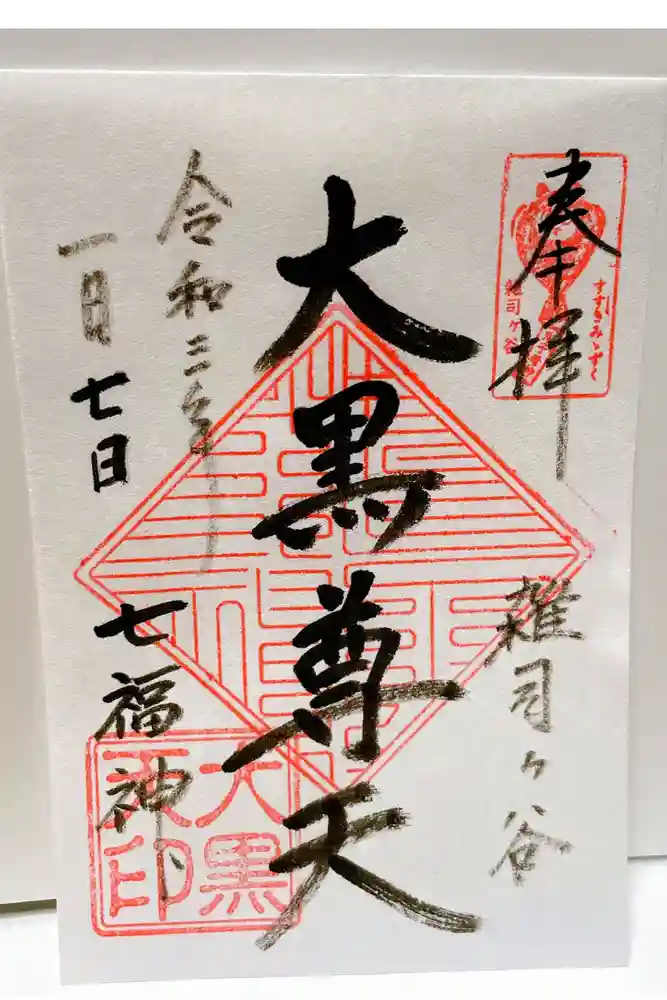 奉拝
雑司ヶ谷
すすきみゝずく
雑司ヶ谷
大黒尊天
令和三年
一月七日
七福神
大黒天印